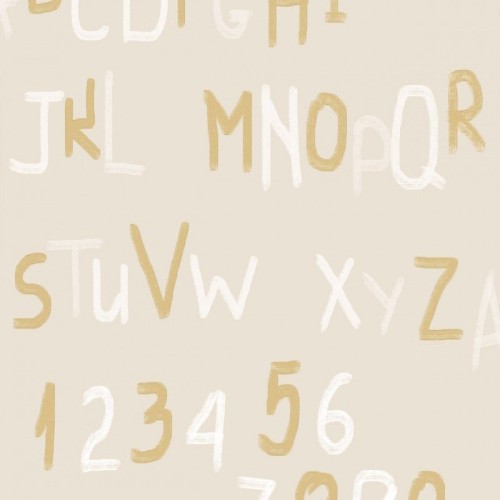 BCDFGHI
JKL MNOPQR
STUVW XYZ A
1 2 3 4 5 6
7 8 9 0